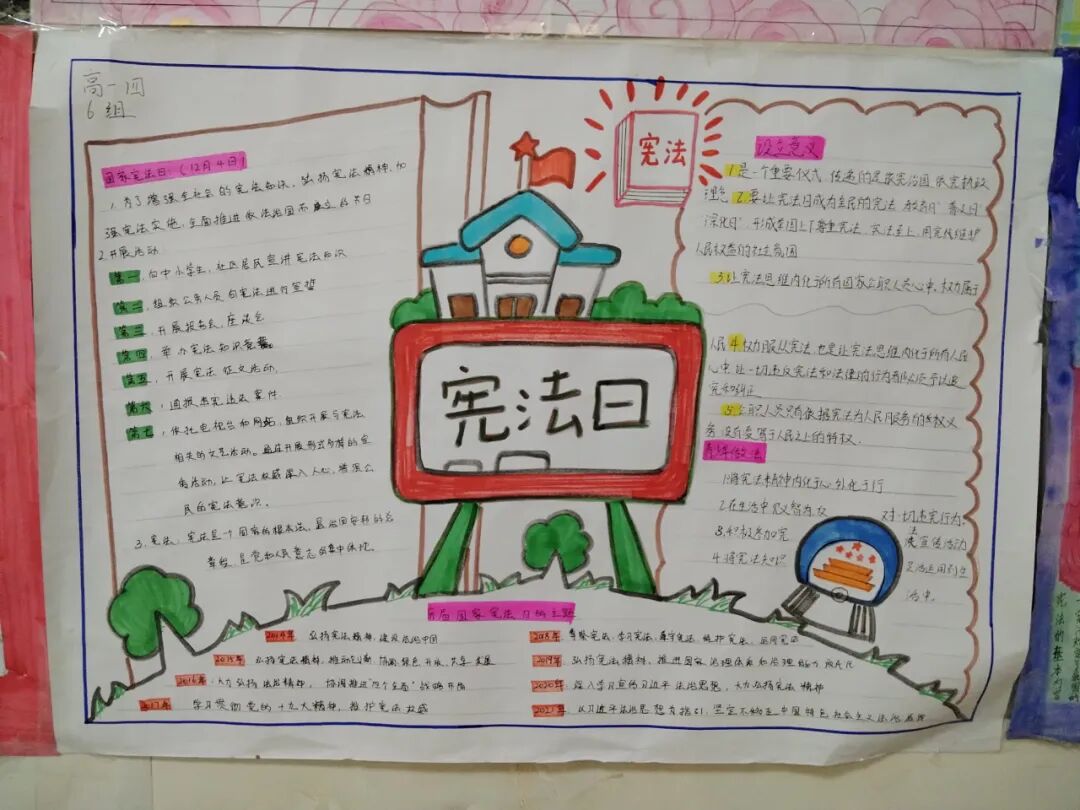 高一四
6组
国家宪法日:(12月4日)
1.为了增强全社会的宪法知识、弘扬宪法精神、加
强宪法实施、全面推进依法治国而设立的节日
2.开展活动
第一,向中小学生,社区居民宣讲宪法知识
第二,组织公务人员向宪法进行宣誓
第三,开展报告会,座谈会
第四,举办宪法知识竞赛
第五,开展宪法征文活动,
第六,通报违宪违法案件
第七,依托电视台和网站,组织开展与宪法
相关的文艺活动。通过开展形式多样的宣
传活动,让宪法权威深入人心,增强公
民的宪法意识。
3.宪法:宪法是一个国家的根本法,是治国安邦的总
章程,是党和人民意志的集中体现。
宪法
宪法日
设立意义
1.是一个重要仪式,传递的是依宪治国,依宪执政
理念 2.要让宪法日成为全民的宪法"教育日"普及日"
深化日",形成全国上下尊重宪法,宪法至上,用宪法维护
人民权益的社会氛围
3.让宪法思维内化于所有国家公职人员心中、权力属于
人民 4.权力服从宪法,也是让宪法思维内化于所有人民
心中,让一切违反宪法和法律的行为都必须予以追
究和纠正
5.公职人员只有依据宪法为人民服务的义
务,没有凌驾于人民之上的特权.
青年做法
1.将宪法精神内化于心,外化于行
2.在生活中 对一切违宪行为
3.积极参加宪法宣传活动
4.将宪法知识灵活运用到生
活中.
历届国家宪法日的主题
2014年 弘扬宪法精神,建设法治中国
2015年 弘扬宪法精神,推动创新、协调、绿色、开放、共享发展
2016年 大力弘扬法治精神,协调推进"四个全面"战略布局
2017年 学习贯彻党的十九大精神,维护宪法权威
2018年 尊崇宪法、学习宪法、遵守宪法、维护宪法、运用宪法
2019年 弘扬宪法精神,推进国家治理体系和治理能力现代化
2020年 深入学习宣传习近平法治思想,大力弘扬宪法精神
2021年 以习近平法治思想为指引,坚定不移走中国特色社会主义法治道路